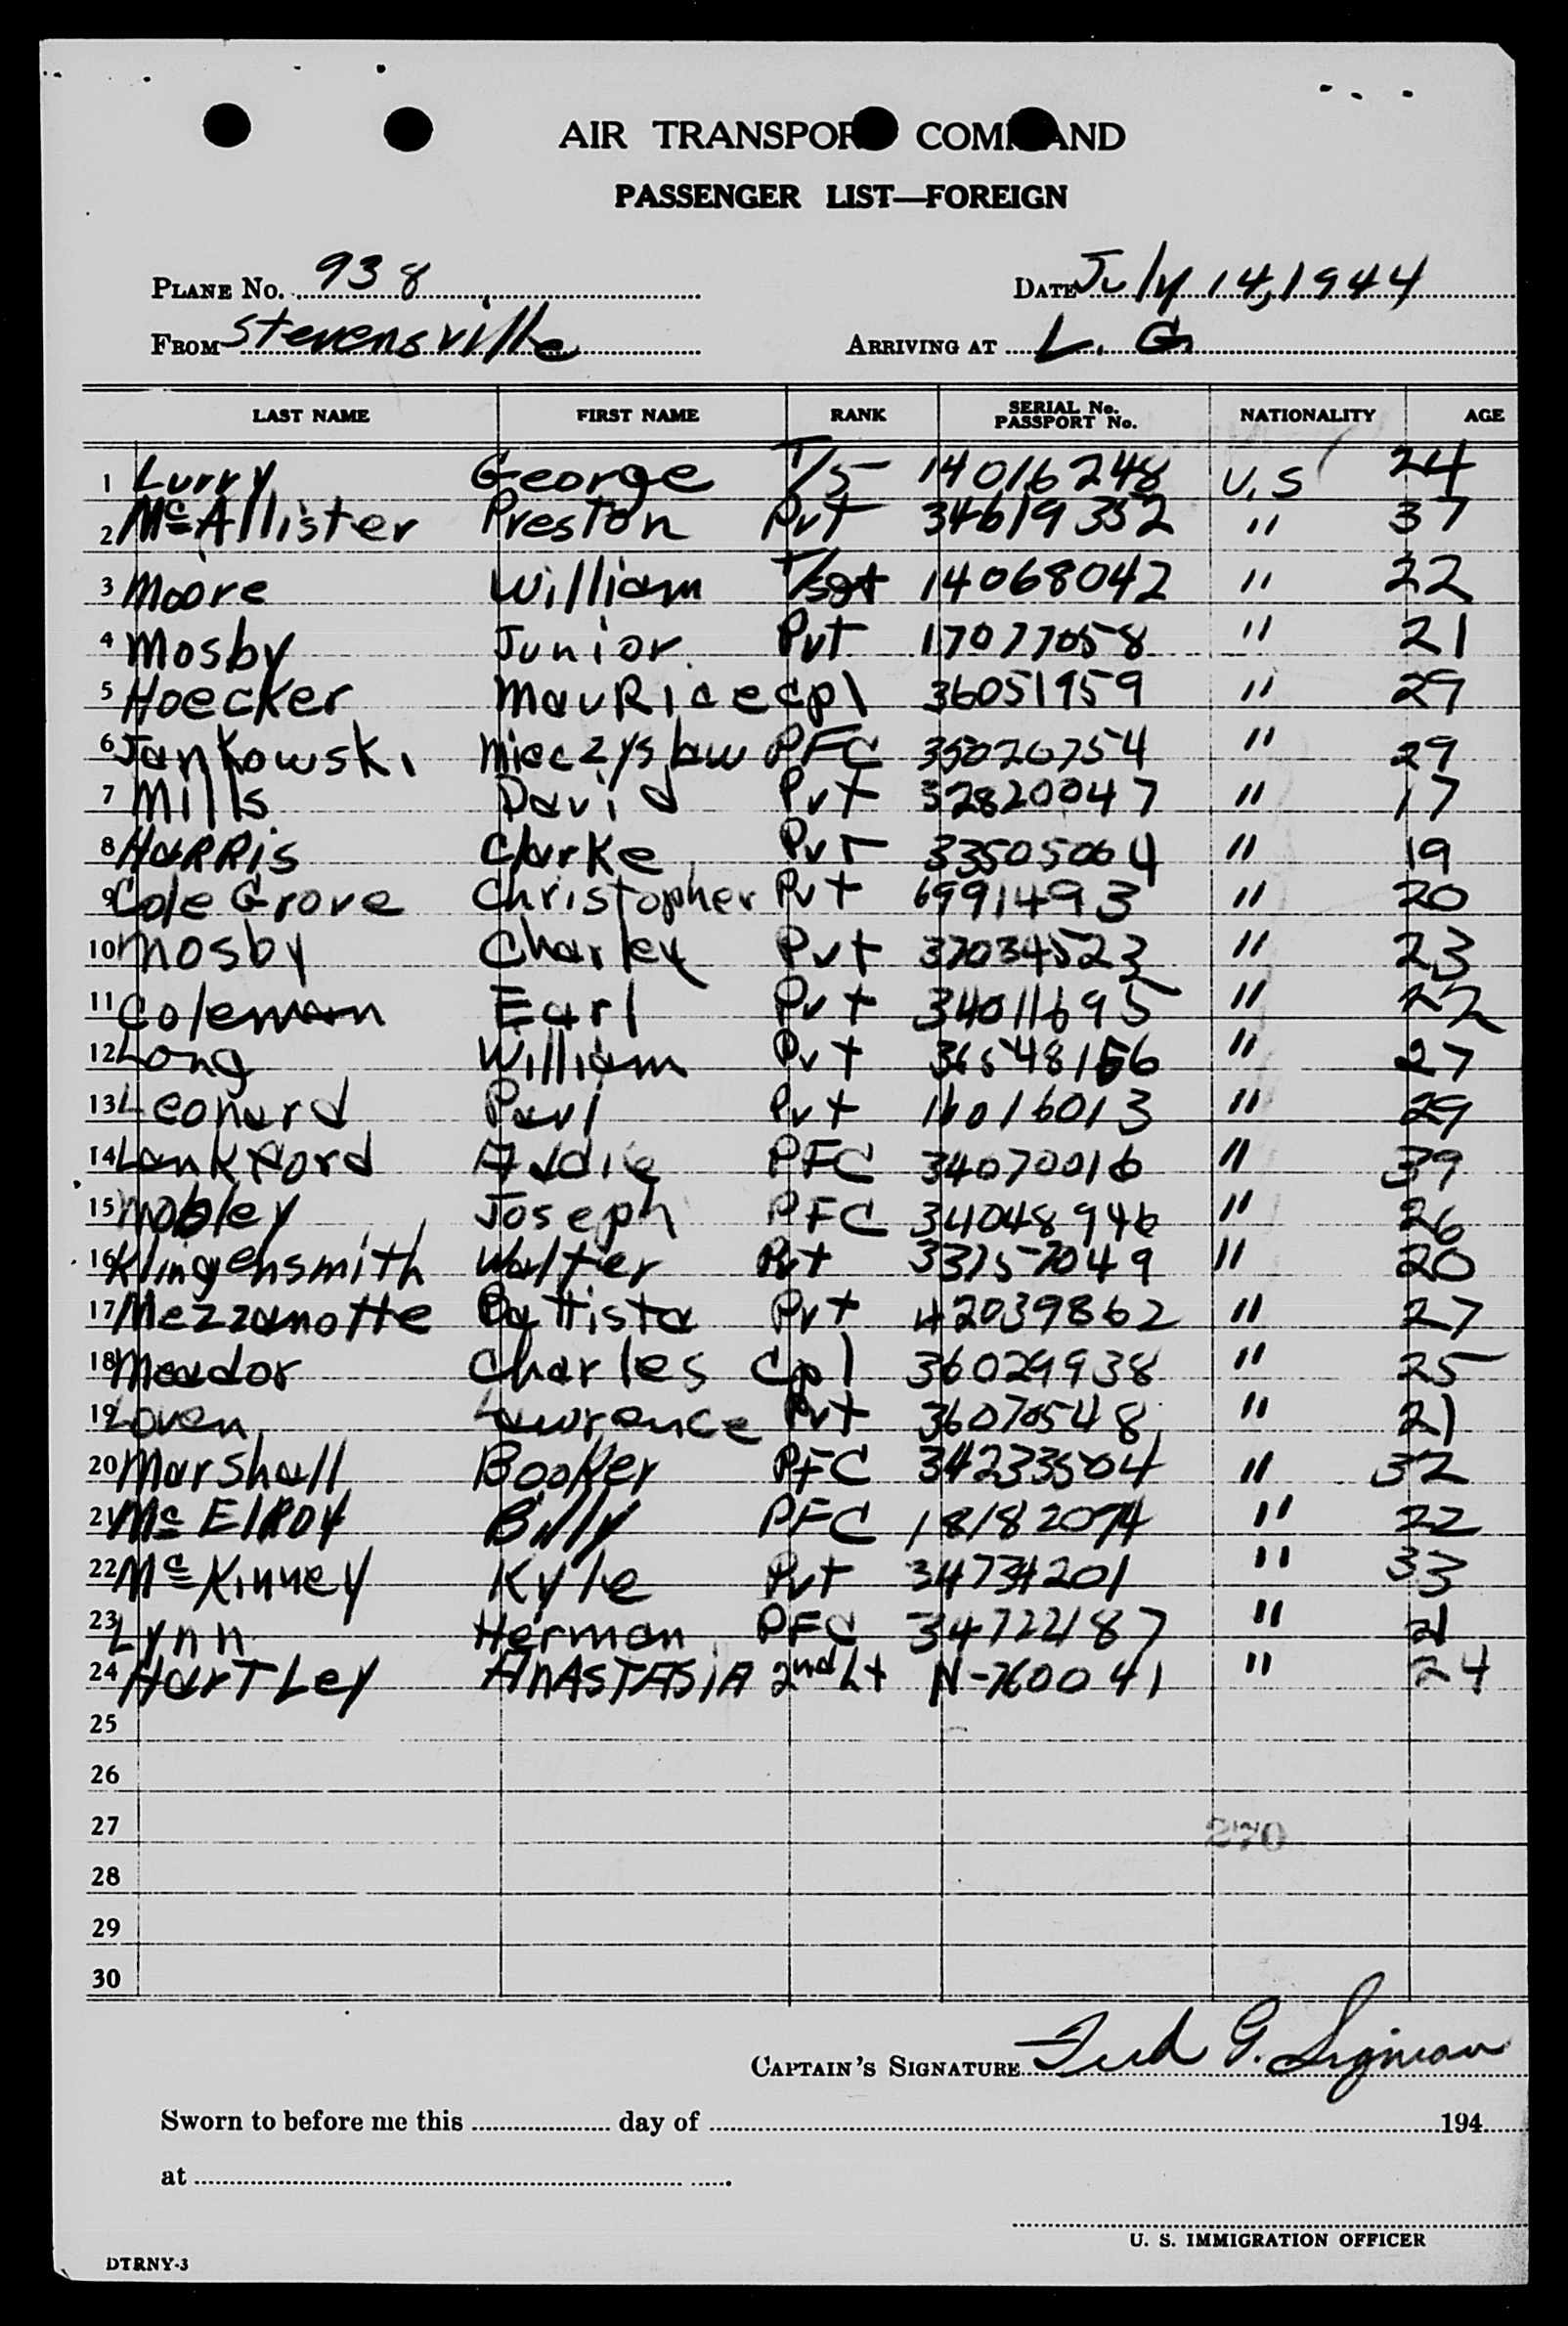 AIR TRANSPORT COMMAND
PASSENGER LIST—FOREIGN
PLANE No. 938 DATE July 14, 1944
FROM Stevensville ARRIVING AT L. G.
LAST NAME FIRST NAME RANK SERIAL No. PASSPORT No. NATIONALITY AGE
1 Lurry George T/5 14016248 U.S 24
2 McAllister Preston Pvt 34619352 " 37
3 Moore William T/sgt 14068042 " 22
4 Mosby Junior Pvt 17077058 " 21
5 Hoecker Maurice cpl 36051959 " 29
6 Jankowski Mieczyslaw PFC 35020754 " 29
7 Mills David Pvt 32820047 " 17
8 HARRis Clarke Pvt 33505064 " 19
9 Cole Grove Christopher Pvt 6991493 " 20
10 Mosby Charley Pvt 37034523 " 23
11 Coleman Earl Pvt 34011695 " 22
12 Long William Pvt 36548156 " 27
13 Leonard Paul Pvt 16016013 " 29
14 Lankford Audie PFC 34070016 " 39
15 Mobley Joseph PFC 34048946 " 26
16 Klingensmith Walter Pvt 33157049 " 20
17 Mezzanotte Battista Pvt 42039862 " 27
18 Meador Charles Cpl 36029938 " 25
19 Loven Lawrence Pvt 36070548 " 21
20 Marshall Booker PFC 34233504 " 32
21 Mc ElRoy Billy PFC 18182074 " 22
22 McKinney Kyle Pvt 34734201 " 33
23 Lynn Herman PFC 34722187 " 21
24 HarTLey AnASTASiA 2nd Lt N-760041 " 24
25
26
27 270
28
29
30
CAPTAIN'S SIGNATURE Fred G. Sigman
Sworn to before me this day of 194
at
U. S. IMMIGRATION OFFICER
DTRNY-3